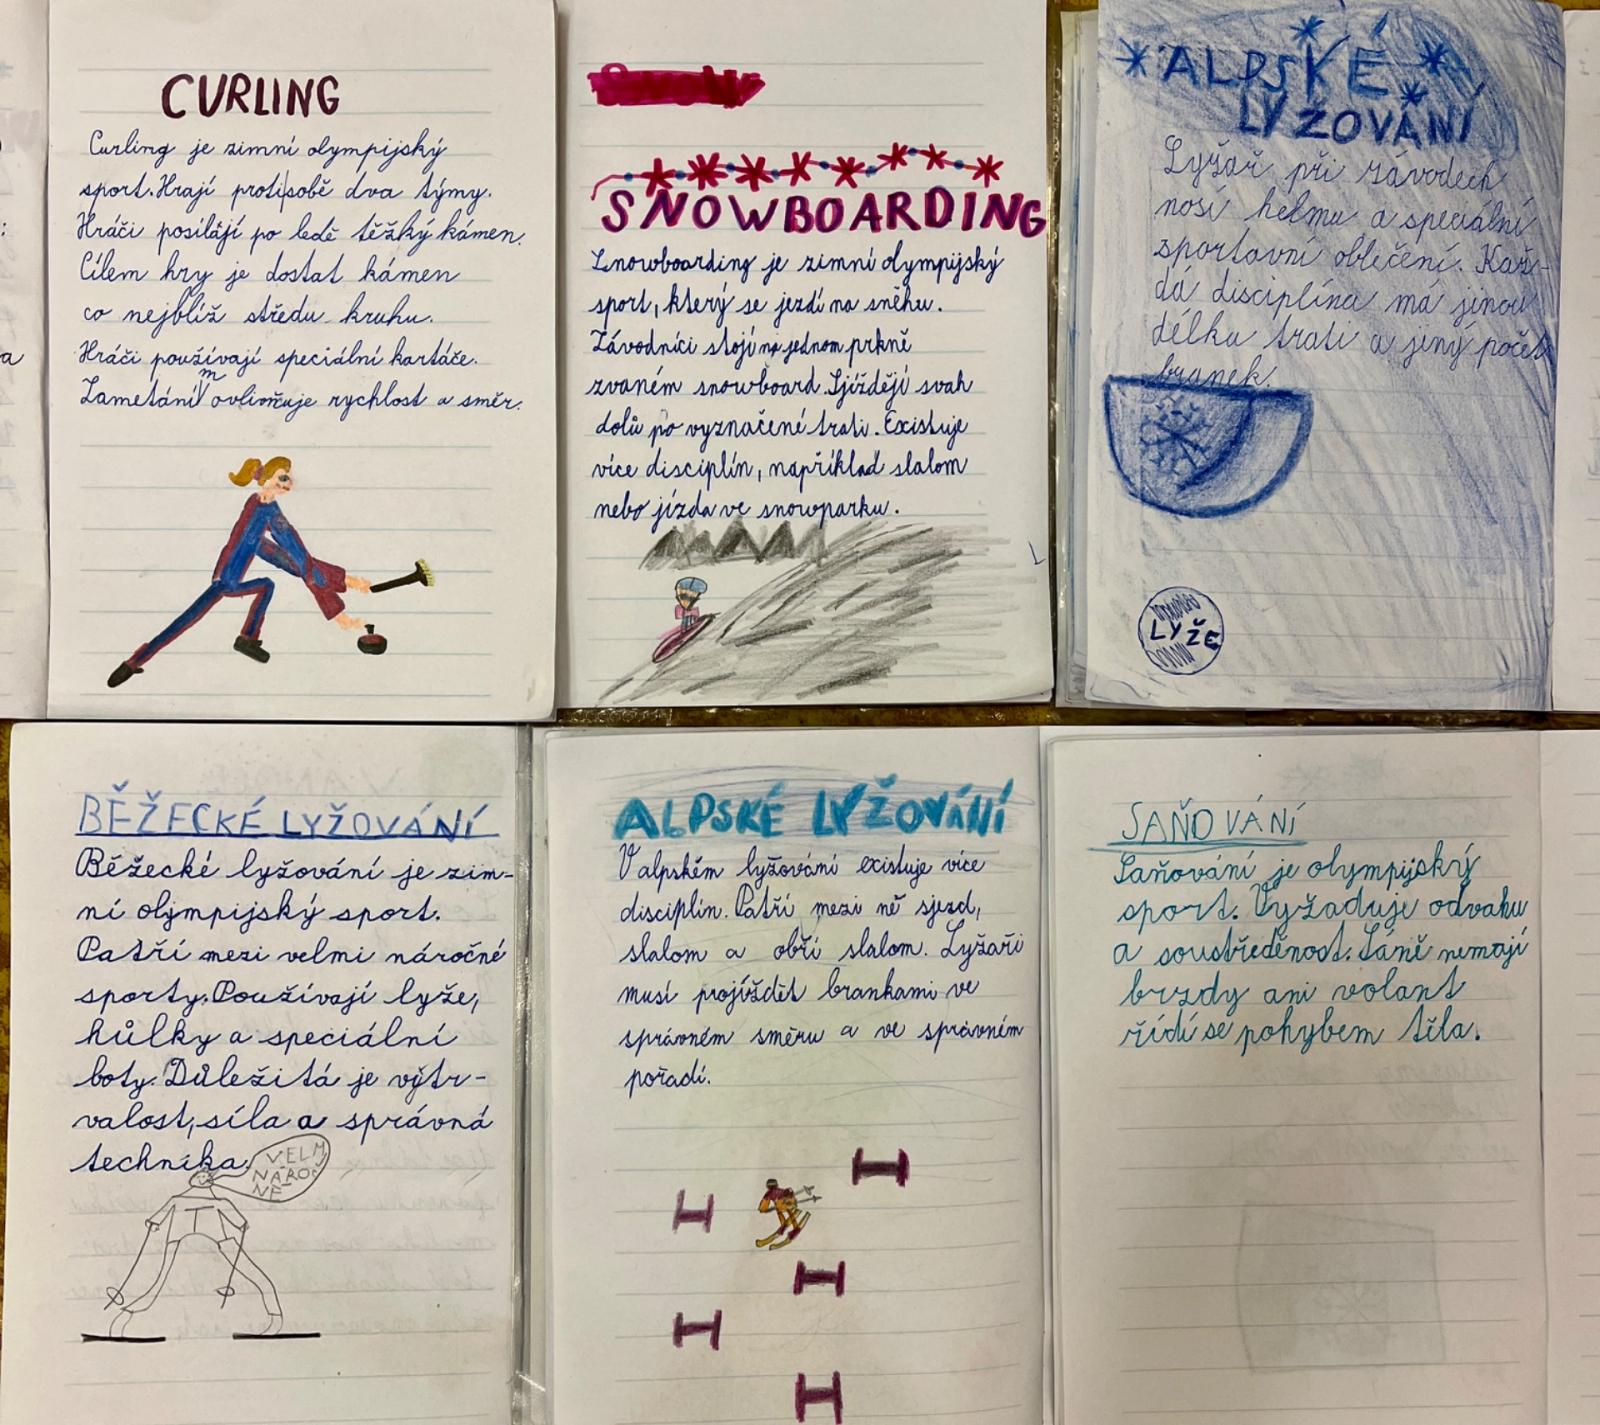 CURLING
Curling je zimní olympijský
sport. Hrají proti sobě dva týmy.
Hráči posílají po ledě těžký kámen.
Cílem hry je dostat kámen
co nejblíž středu kruhu.
Hráči používají speciální kartáče.
Zametáním ovlivňuje rychlost a směr.
SNOWBOARDING
Snowboarding je zimní olympijský
sport, který se jezdí na sněhu.
Závodníci stojí na jednom prkně
zvaném snowboard. Sjíždějí svah
dolů po vyznačené trati. Existuje
více disciplín, například slalom
nebo jízda ve snowparku.
ALPSKÉ
LYŽOVÁNÍ
Lyžař při závodech
nosí helmu a speciální
sportovní oblečení. Kaž-
dá disciplína má jinou
délku trati a jiný počet
branek.
LYŽE
BĚŽECKÉ LYŽOVÁNÍ
Běžecké lyžování je zim-
ní olympijský sport.
Patří mezi velmi náročné
sporty. Používají lyže,
hůlky a speciální
boty. Důležitá je vytr-
valost, síla a správná
technika.
VELMI
NÁROČ
NÉ
ALPSKÉ LYŽOVÁNÍ
V alpském lyžování existuje více
disciplín. Patří mezi ně sjezd,
slalom a obří slalom. Lyžaři
musí projíždět brankami ve
správném směru a ve správném
pořadí.
SAŇOVÁNÍ
Saňování je olympijský
sport. Vyžaduje odvahu
a soustředěnost. Sáně nemají
brzdy ani volant
řídí se pohybem těla.